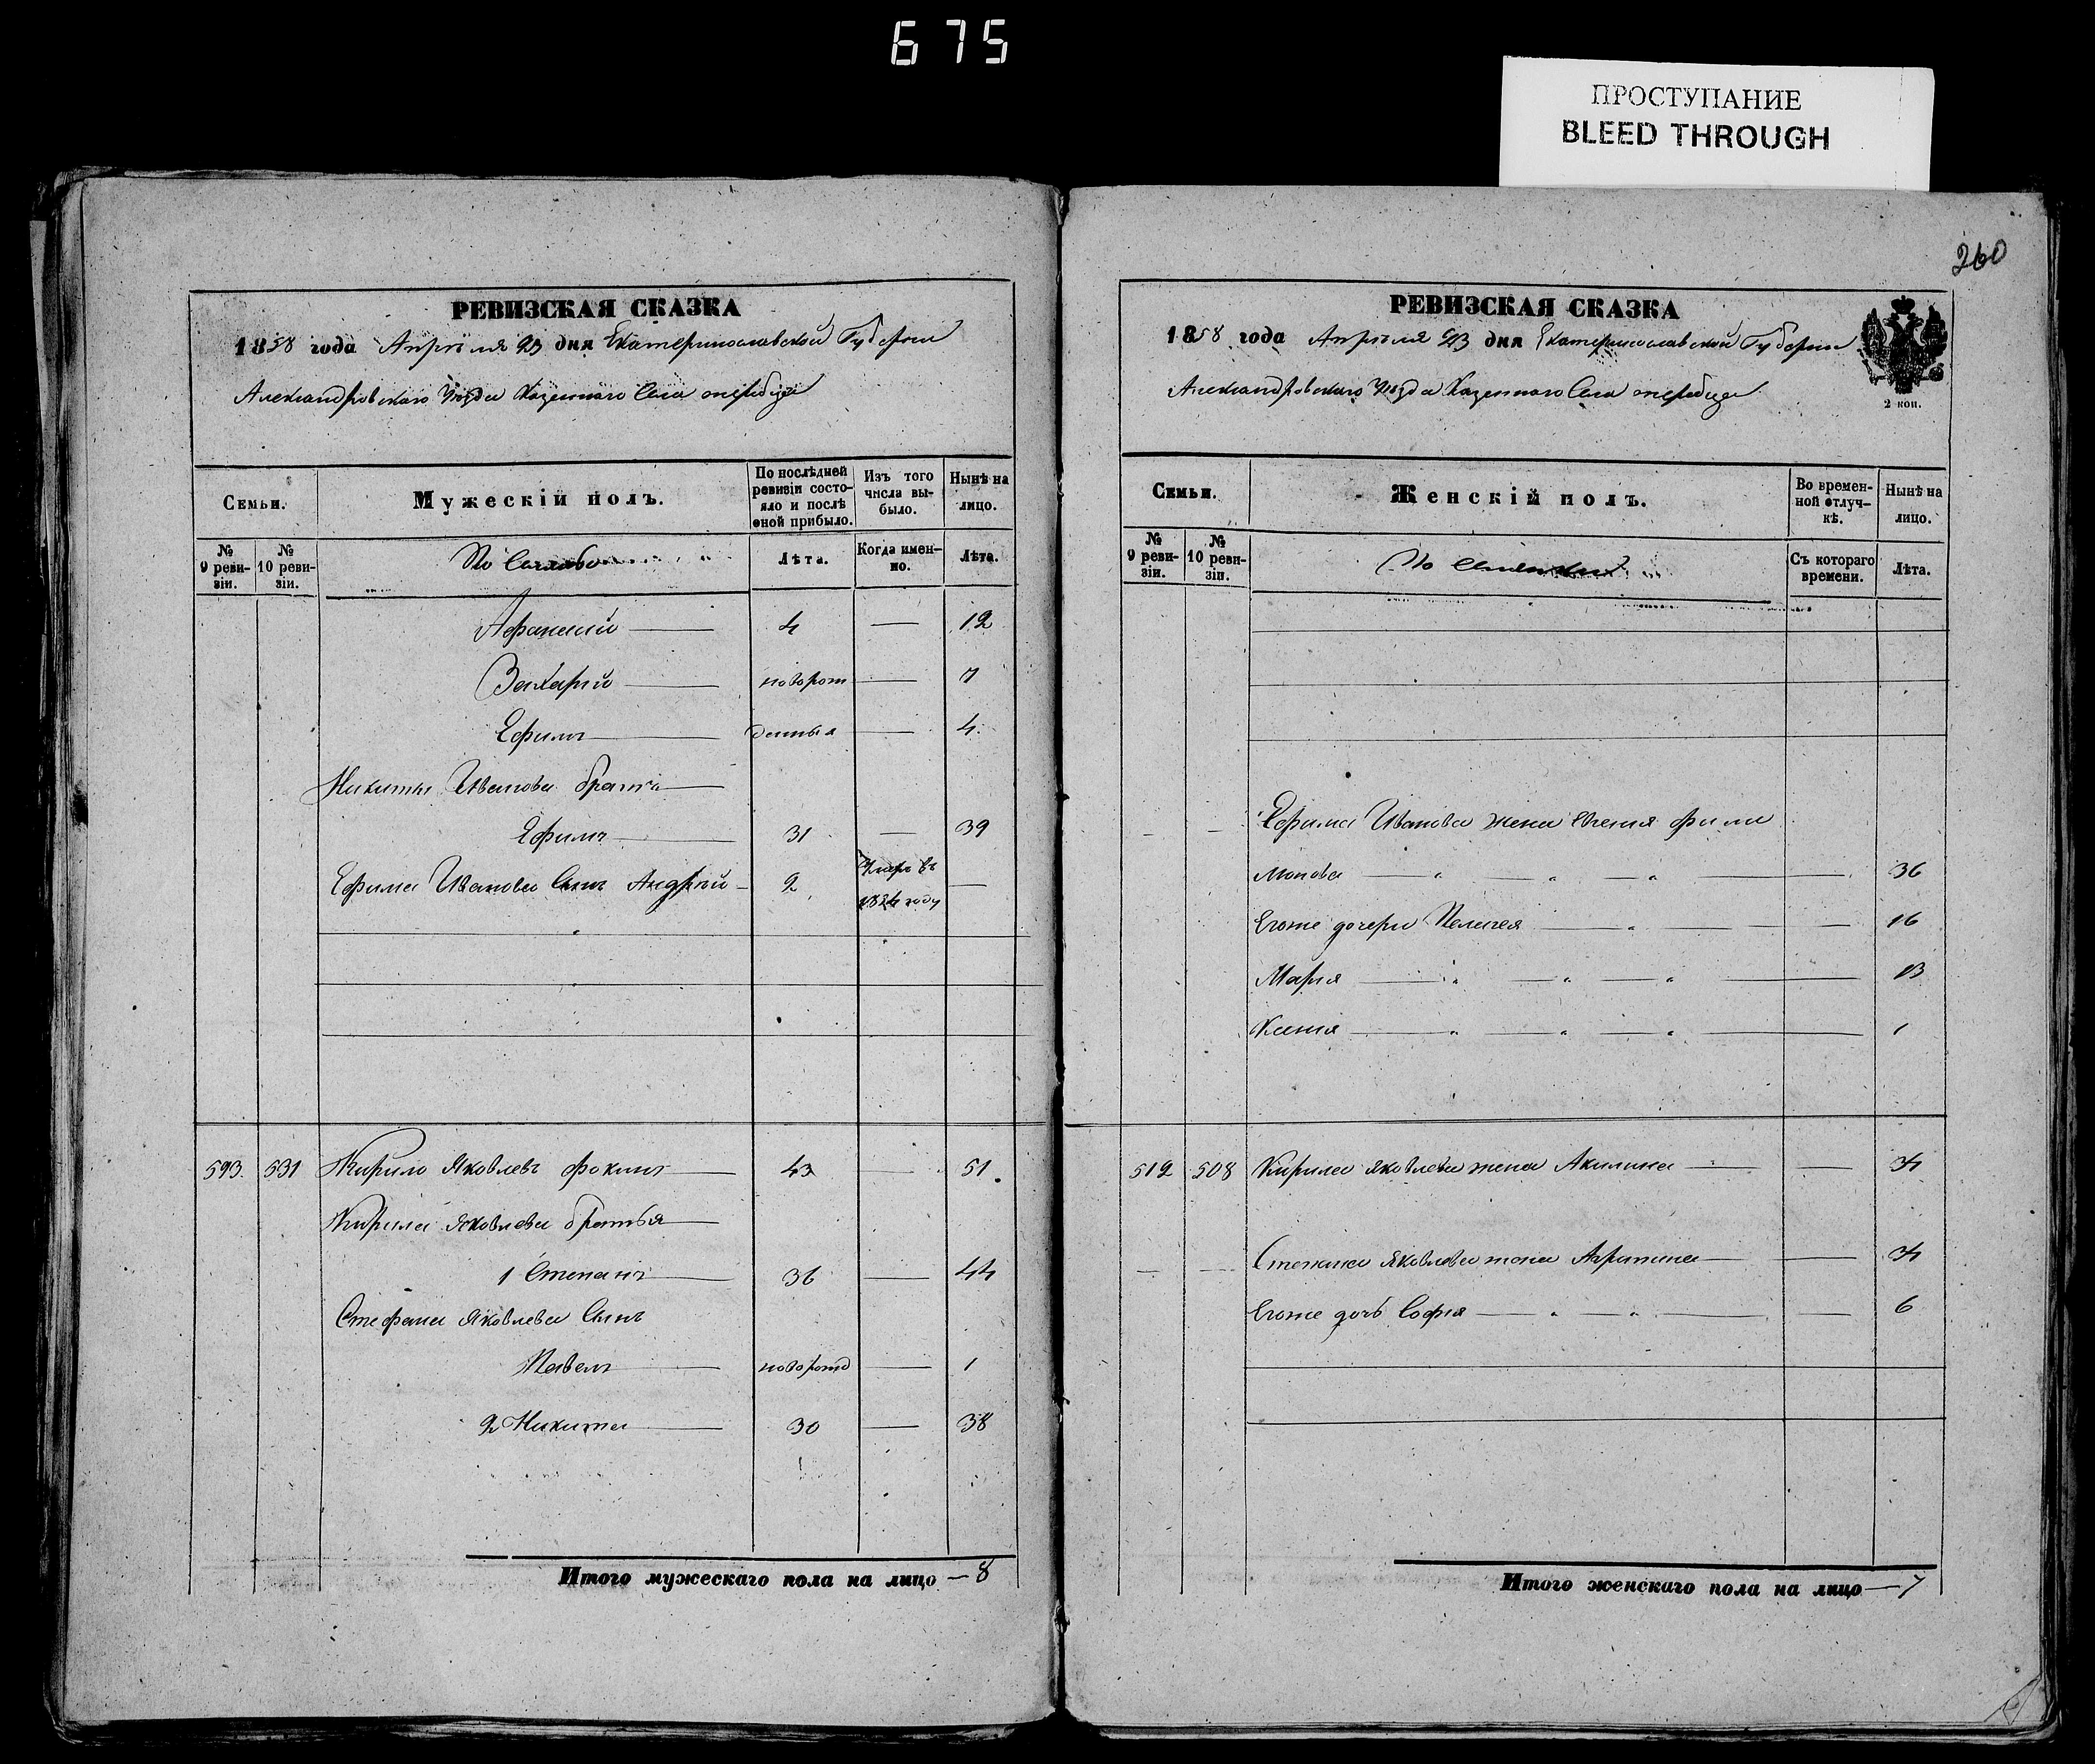 675
ПРОСТУПАНИЕ
BLEED THROUGH
РЕВИЗСКАЯ СКАЗКА
1858 года Апреля 23 дня Екатеринославской Губернии
Александровскаго Уезда Казеннаго Села
Семьи.
Мужескій полъ.
По послѣдней ревизіи состо-
яло и послѣ оной прибыло.
Изъ того числа вы-
было.
Нынѣ на лицо.
№ 9 реви-
зіи.
№ 10 реви-
зіи.
По
Лѣта.
Когда имен-
но.
Лѣта.
Афанасий — 4 — 12
Захарий — новорож — 7
Ефимъ — — 4
Никиты Иванова братъ —
Ефимъ — 31 — 39
Ефима Иванова Сынъ Андрей — 2 Умеръ въ 1854 году —
593. 531 Кирило Яковлевъ Фокинъ — 43 — 51
Кирила Яковлева братья —
1 Степанъ — 36 — 44
Стефана Яковлева Сынъ
Павелъ — новорожд — 1
2 Никита — 30 — 38
Итого мужескаго пола на лицо — 8
260
РЕВИЗСКАЯ СКАЗКА
1858 года Апреля 23 дня Екатеринославской Губернии
Александровскаго Уезда Казеннаго Села
2 коп.
Семьи.
Женскій полъ.
Во времен-
ной отлуч-
кѣ.
Нынѣ на лицо.
№ 9 реви-
зіи.
№ 10 реви-
зіи.
По
Съ котораго времени.
Лѣта.
Ефима Иванова жена Евгения Фили
монова — 36
Егоже дочери Пелагея — 16
Мария — 13
Ксения — 1
512 508 Кирила Яковлева жена Акилина — 34
Степана Яковлева жена Аграпина — 34
Егоже дочь София — 6
Итого женскаго пола на лицо — 7